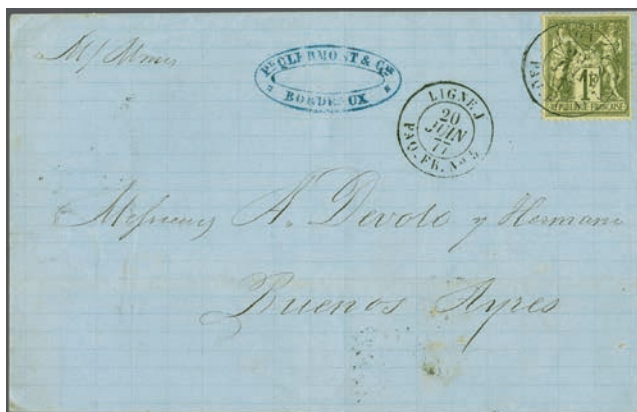 Pre CLERMONT & Cie
BORDEAUX
LIGNE J
20
JUIN
77
PAQ. FR. No 5
1F
REPUBLIQUE FRANCAISE
Messieurs A. Devoto y Hermano
Buenos Ayres